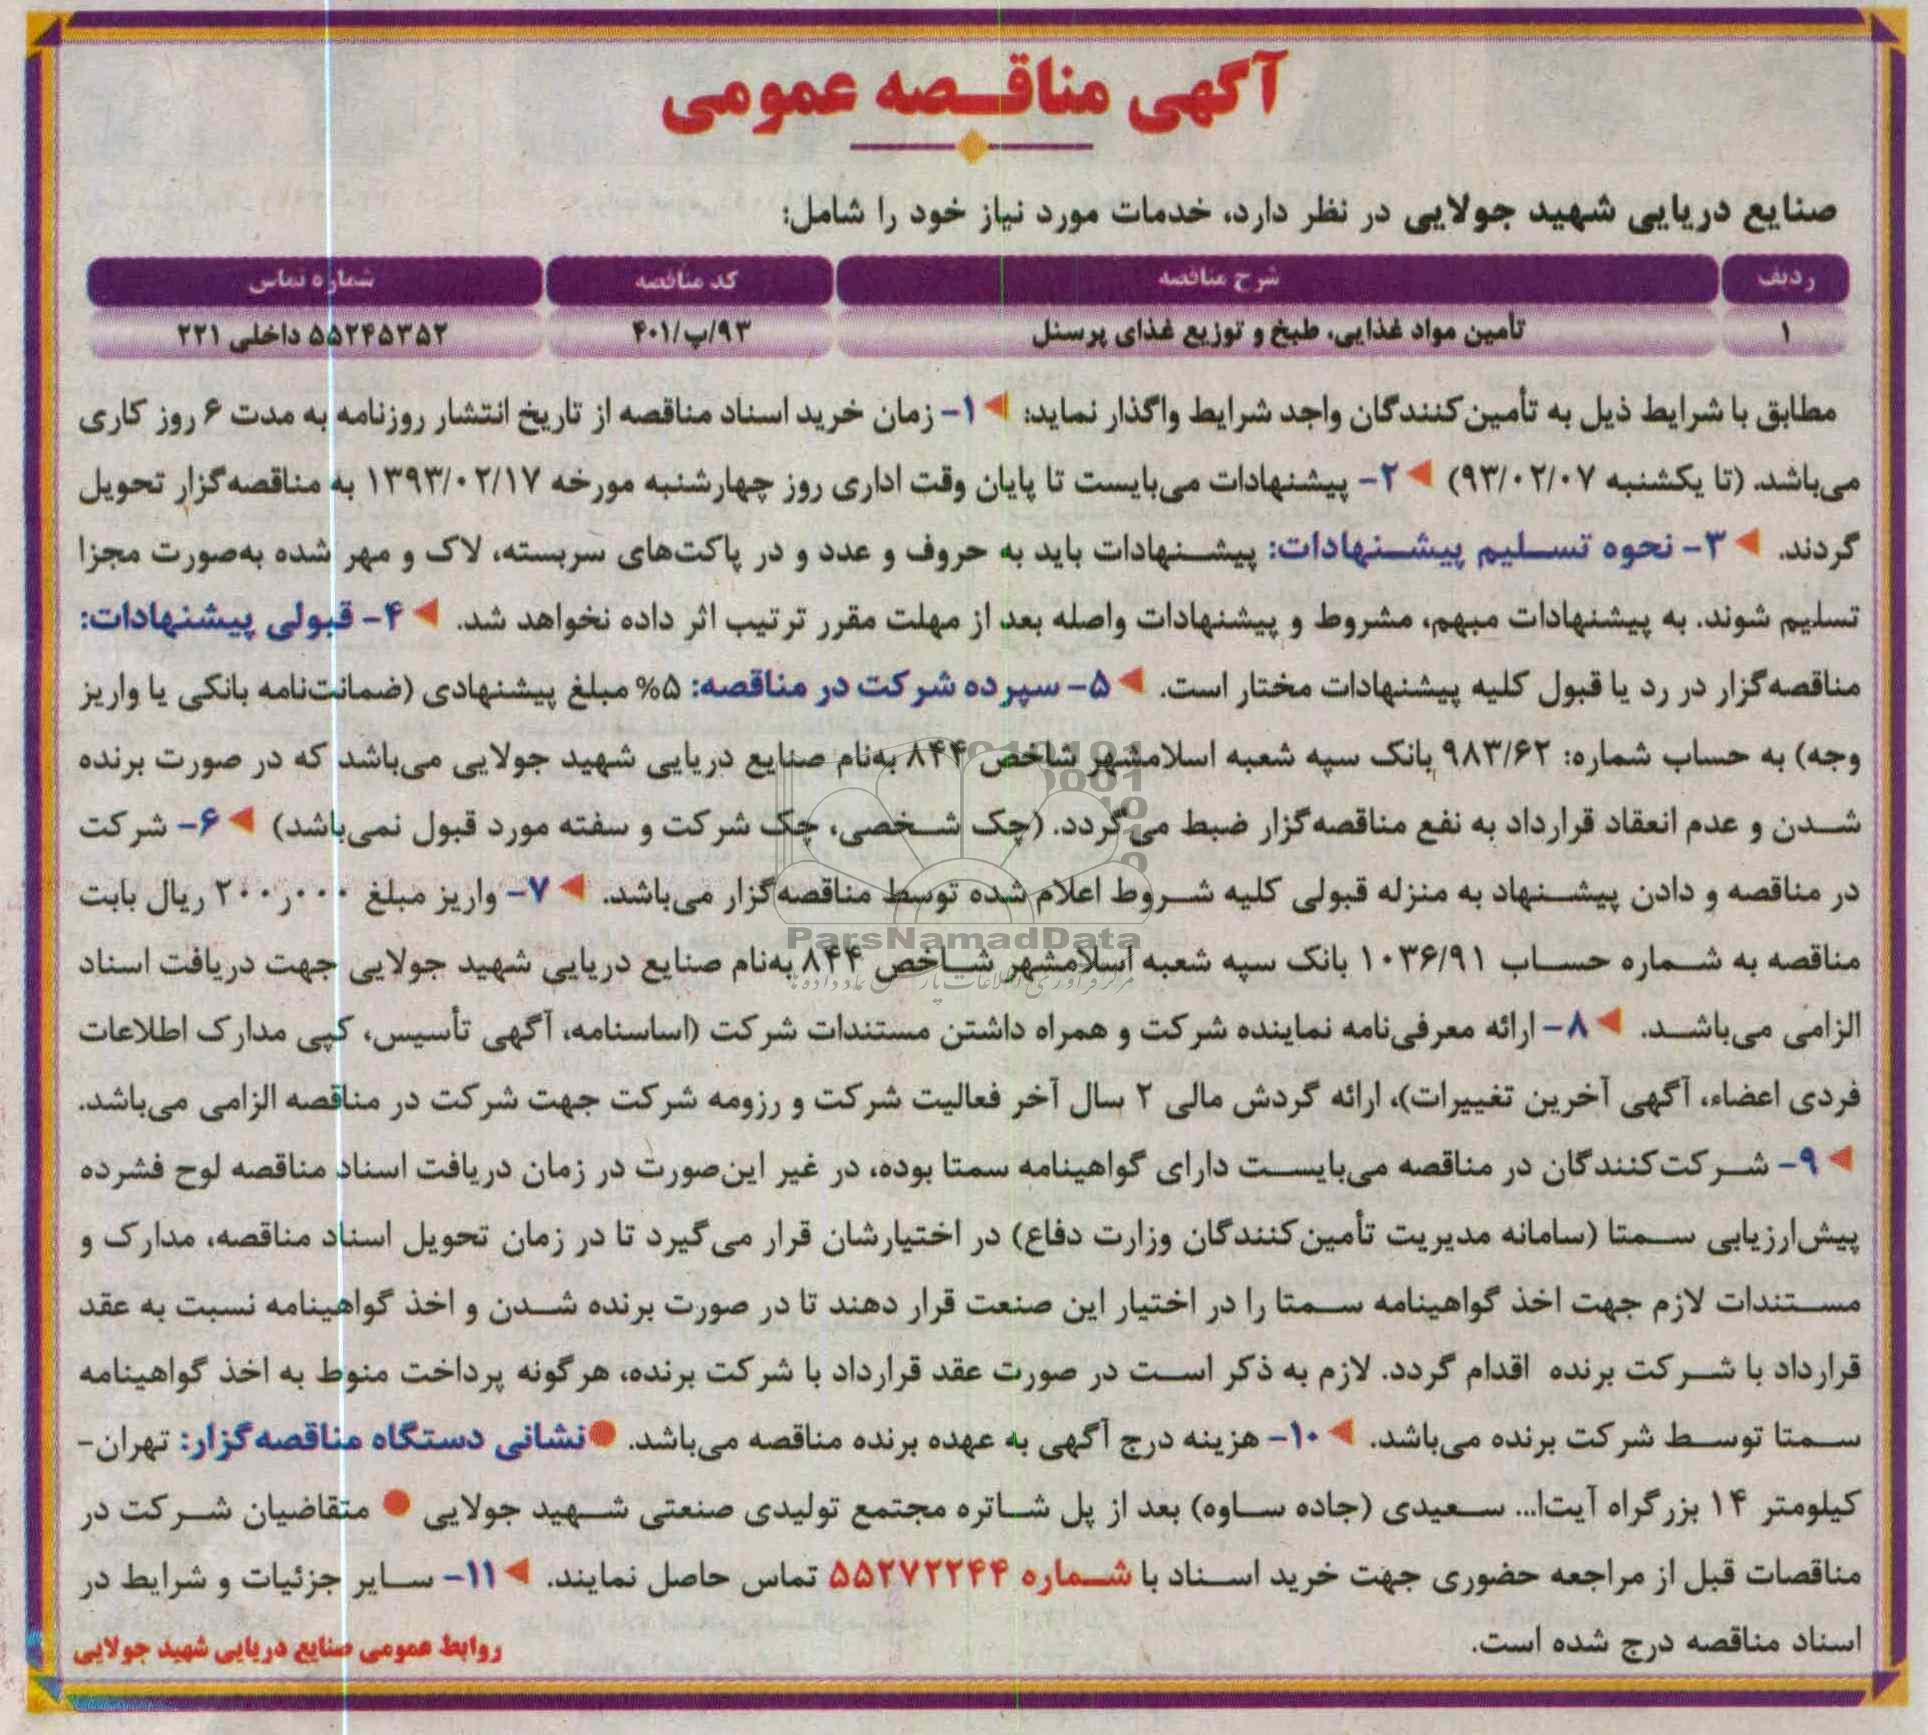 آگهی مناقصه عمومی
صنایع دریایی شهید جولایی در نظر دارد، خدمات مورد نیاز خود را شامل:
ردیف شرح مناقصه کد مناقصه شماره تماس
۱ تأمین مواد غذایی، طبخ و توزیع غذای پرسنل ۹۳/پ/۴۰۱ ۵۵۲۴۵۳۵۲ داخلی ۲۲۱
مطابق با شرایط ذیل به تأمین‌کنندگان واجد شرایط واگذار نماید: ◄۱- زمان خرید اسناد مناقصه از تاریخ انتشار روزنامه به مدت ۶ روز کاری
می‌باشد. (تا یکشنبه ۹۳/۰۲/۰۷) ◄۲- پیشنهادات می‌بایست تا پایان وقت اداری روز چهارشنبه مورخه ۱۳۹۳/۰۲/۱۷ به مناقصه‌گزار تحویل
گردند. ◄۳- نحوه تسلیم پیشنهادات: پیشنهادات باید به حروف و عدد و در پاکت‌های سربسته، لاک و مهر شده به‌صورت مجزا
تسلیم شوند. به پیشنهادات مبهم، مشروط و پیشنهادات واصله بعد از مهلت مقرر ترتیب اثر داده نخواهد شد. ◄۴- قبولی پیشنهادات:
مناقصه‌گزار در رد یا قبول کلیه پیشنهادات مختار است. ◄۵- سپرده شرکت در مناقصه: ۵% مبلغ پیشنهادی (ضمانت‌نامه بانکی یا واریز
وجه) به حساب شماره: ۹۸۳/۶۲ بانک سپه شعبه اسلامشهر شاخص ۸۴۴ به‌نام صنایع دریایی شهید جولایی می‌باشد که در صورت برنده
شدن و عدم انعقاد قرارداد به نفع مناقصه‌گزار ضبط می‌گردد. (چک شخصی، چک شرکت و سفته مورد قبول نمی‌باشد) ◄۶- شرکت
در مناقصه و دادن پیشنهاد به منزله قبولی کلیه شروط اعلام شده توسط مناقصه‌گزار می‌باشد. ◄۷- واریز مبلغ ۲۰۰ر۰۰۰ ریال بابت
مناقصه به شماره حساب ۱۰۳۶/۹۱ بانک سپه شعبه اسلامشهر شاخص ۸۴۴ به‌نام صنایع دریایی شهید جولایی جهت دریافت اسناد
ParsNamadData
الزامی می‌باشد. ◄۸- ارائه معرفی‌نامه نماینده شرکت و همراه داشتن مستندات شرکت (اساسنامه، آگهی تأسیس، کپی مدارک اطلاعات
فردی اعضاء، آگهی آخرین تغییرات)، ارائه گردش مالی ۲ سال آخر فعالیت شرکت و رزومه شرکت جهت شرکت در مناقصه الزامی می‌باشد.
◄۹- شرکت‌کنندگان در مناقصه می‌بایست دارای گواهینامه سمتا بوده، در غیر این‌صورت در زمان دریافت اسناد مناقصه لوح فشرده
پیش‌ارزیابی سمتا (سامانه مدیریت تأمین‌کنندگان وزارت دفاع) در اختیارشان قرار می‌گیرد تا در زمان تحویل اسناد مناقصه، مدارک و
مستندات لازم جهت اخذ گواهینامه سمتا را در اختیار این صنعت قرار دهند تا در صورت برنده شدن و اخذ گواهینامه نسبت به عقد
قرارداد با شرکت برنده اقدام گردد. لازم به ذکر است در صورت عقد قرارداد با شرکت برنده، هرگونه پرداخت منوط به اخذ گواهینامه
سمتا توسط شرکت برنده می‌باشد. ◄۱۰- هزینه درج آگهی به عهده برنده مناقصه می‌باشد. ●نشانی دستگاه مناقصه‌گزار: تهران-
کیلومتر ۱۴ بزرگراه آیت‌ا... سعیدی (جاده ساوه) بعد از پل شاتره مجتمع تولیدی صنعتی شهید جولایی ● متقاضیان شرکت در
مناقصات قبل از مراجعه حضوری جهت خرید اسناد با شماره ۵۵۲۷۲۲۴۴ تماس حاصل نمایند. ◄۱۱- سایر جزئیات و شرایط در
اسناد مناقصه درج شده است.
روابط عمومی صنایع دریایی شهید جولایی